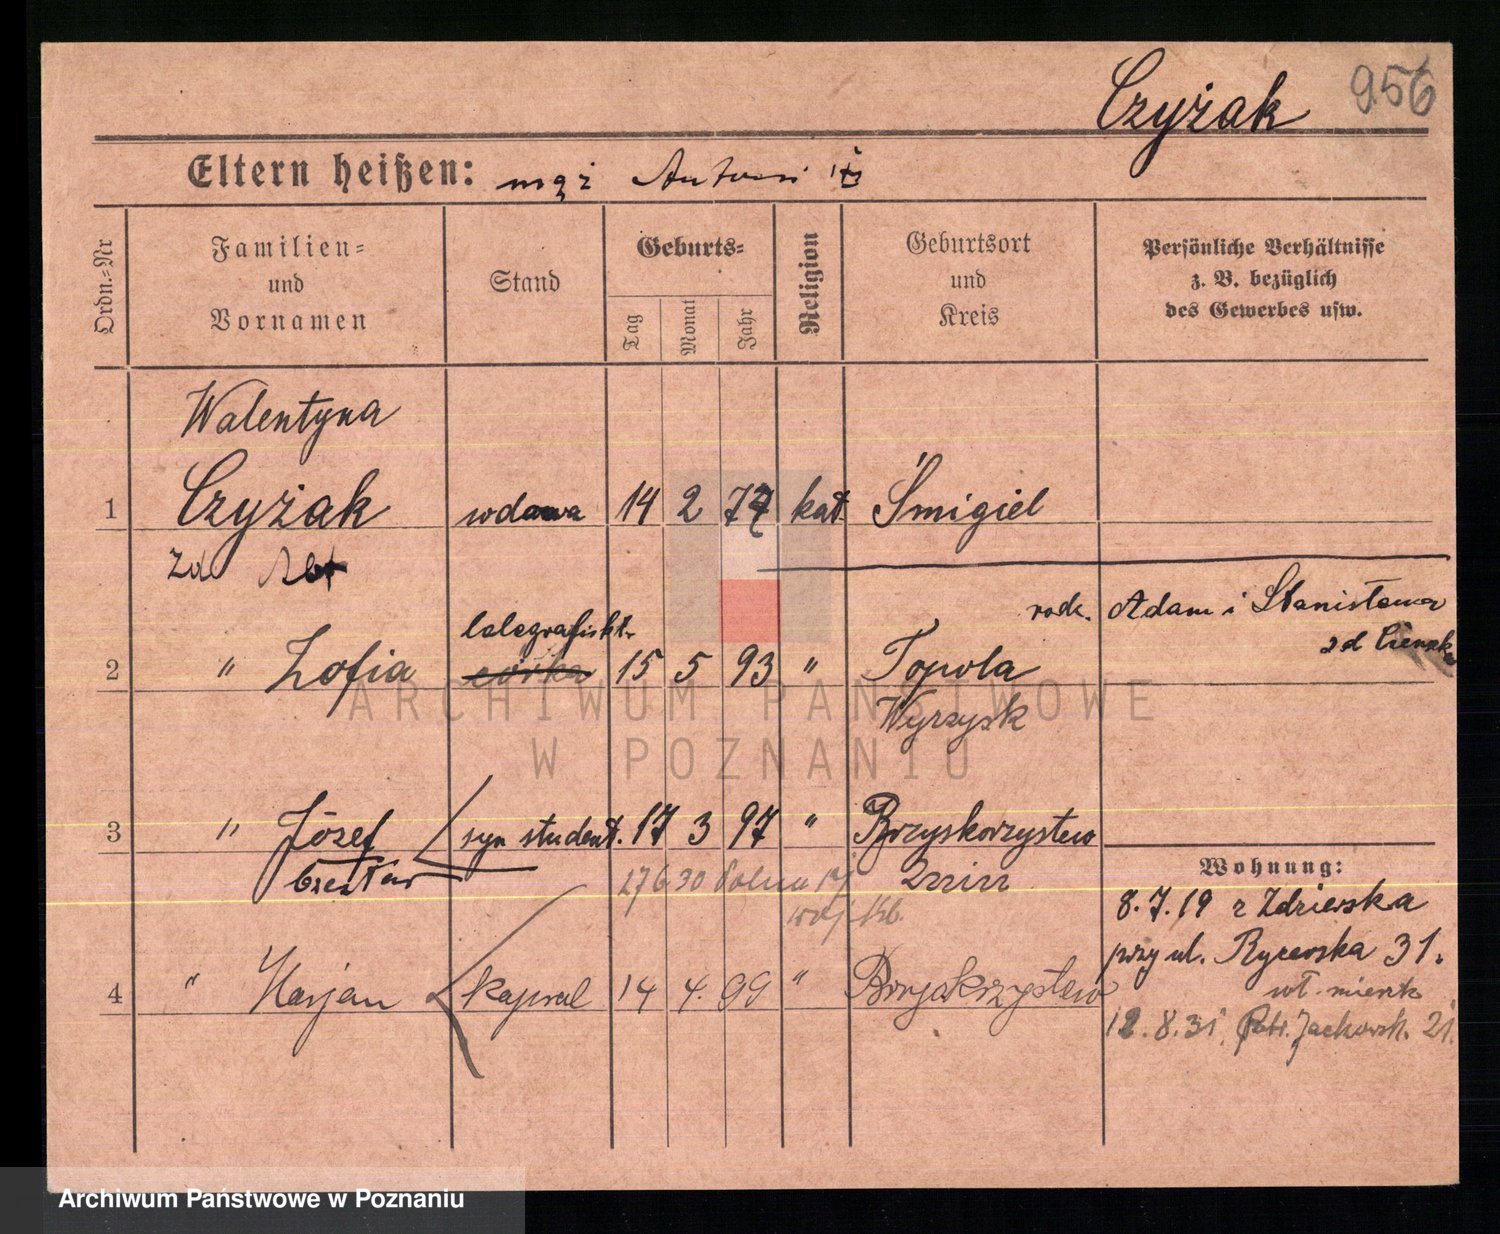 956
Czyżak
Eltern heißen: mąż Antoni
Ordn.-Nr
Familien- und Vornamen
Stand
Geburts-
Tag
Monat
Jahr
Religion
Geburtsort und Kreis
Persönliche Verhältnisse z. B. bezüglich des Gewerbes usw.
Walentyna
1 Czyżak wdowa 14 2 77 kat. Śmigiel
zd
rodz. Adam i Stanisława
zd
2 " Zofia córka 15 5 93 " Topola
Wyrzysk
3 " Józef syn student. 17 3 97 " Brzyskorzystew
Żnin
Czesław
27 6 30 Polna
4 " Marjan kapral 14 4. 99 " Brzyskorzystew
Wohnung:
8.7.19 z Zdzierska
przy ul. Rycerska 31.
wł. mieszk
12.8.31. Patr. Jackowsk. 21.
ARCHIWUM PAŃSTWOWE
W POZNANIU
Archiwum Państwowe w Poznaniu